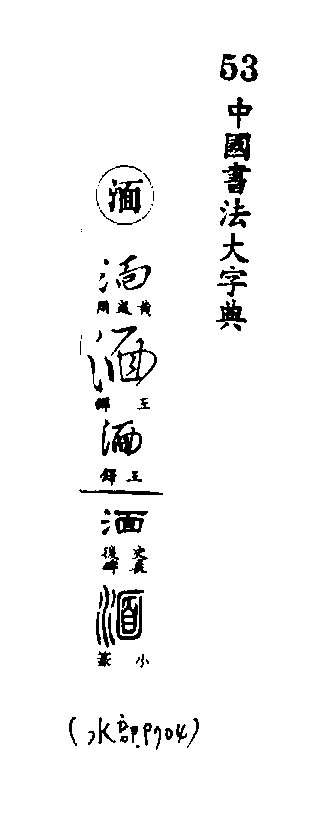 53
中國書法大字典
湎
湎
黃道周
湎
王鐸
湎
王鐸
湎
史晨後碑
湎
小篆
(水部P704)